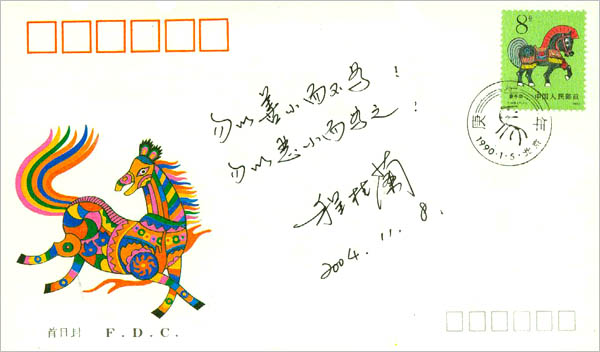 8分
中国人民邮政
庚午
1990·1·5·北京
勿以善小而不为！
勿以恶小而为之！
程桂兰
2004.11.8.
首日封 F.D.C.